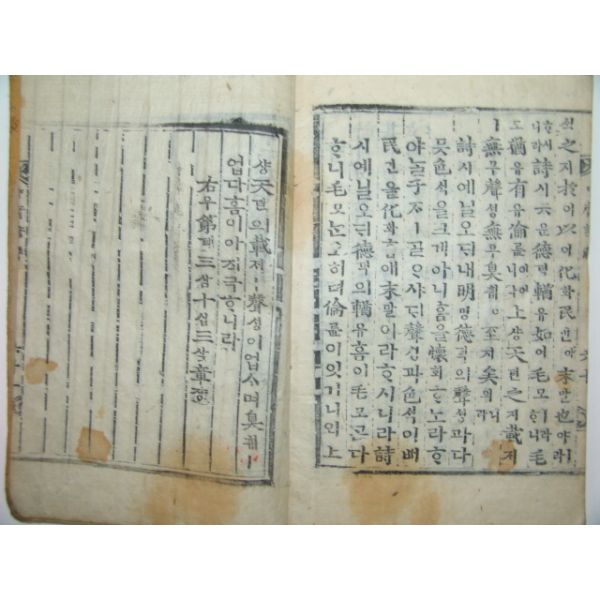 色之지於어以이化화民민애末말也야ㅣ라
ᄒᆞ시니라詩시云운德덕輶유如여毛모ㅣ라ᄒᆞ니毛모
도猶유有유倫륜이어니와上샹天텬之지載ᄌᆡ
ㅣ無무聲셩無무臭ᄎᆔㅣ아至지矣의니라
詩시예닐오ᄃᆡ내明명德덕의聲셩과다
뭇色ᄉᆡᆨ을크게아니홈을懷회ᄒᆞ노라ᄒᆞ
야ᄂᆞᆯ子ᄌᆞㅣᄀᆞᆯᄋᆞ샤ᄃᆡ聲셩과色ᄉᆡᆨ이ᄡᅥ
民민을化화홈애末말이라ᄒᆞ시니라詩
시예닐오ᄃᆡ德덕의輶유홈이毛모ᄀᆞᆮ다
ᄒᆞ니毛모ᄂᆞᆫ오히려倫륜이잇거니와上
샹天텬의載ᄌᆡㅣ聲셩이업스며臭ᄎᆔㅣ
업다홈이아지극ᄒᆞ니라
右우第뎨三삼十십三삼章쟝